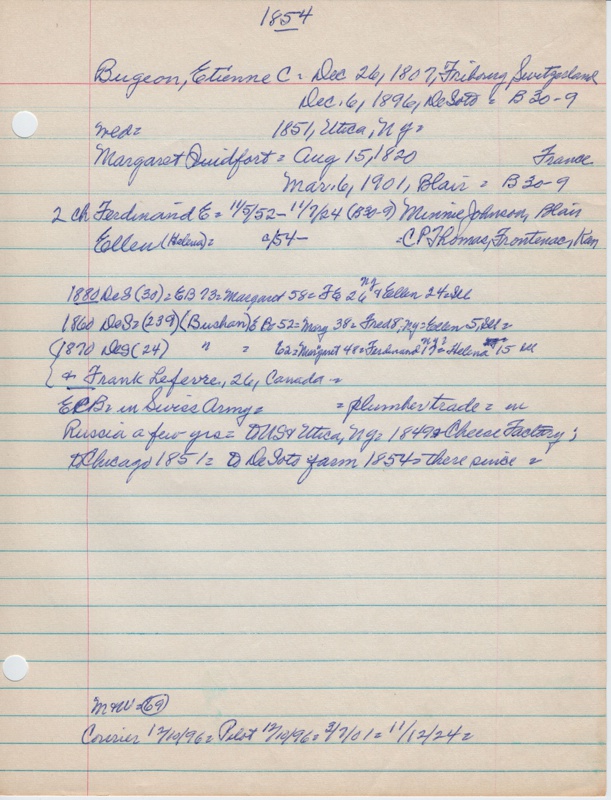 1854
Bugeon, Etienne C = Dec 26, 1807, Fribourg, Switzerland
Dec. 6, 1896, DeSoto = B 30-9
med= 1851, Utica, Ny=
Margaret = Aug 15, 1820 France
Mar. 6, 1901, Blair = B 30-9
2 ch Ferdinand E = 11/5/52 - 11/7/24 (B30-9) Minnie Johnson, Blair
Ellen (Helena) = a/54 - = C P Thomas, Frontenac, Kan
1880 DeS (30) = EB 73 = Margaret 58 = FE 26 ny & Ellen 24 = Ill
1860 DeS = (239) (Bushan) E B 52 = Marg 38 = Fred 8, Ny = Ellen 5, Ill =
1870 DeS (24) " " = 62 = Margaret 48 = Ferdinand 17 = Helena 15 Ill
& Frank Lefevre, 26, Canada =
E C B = in Swiss Army = = plumber trade = in
Russia a few yrs = to US & Utica, Ny = 1849 Cheese Factory;
to Chicago 1851 = to DeSoto farm 1854 = there since =
M&W = (69)
Courier 12/10/96 = Pilot 12/10/96 = 3/7/01 = 11/12/24 =